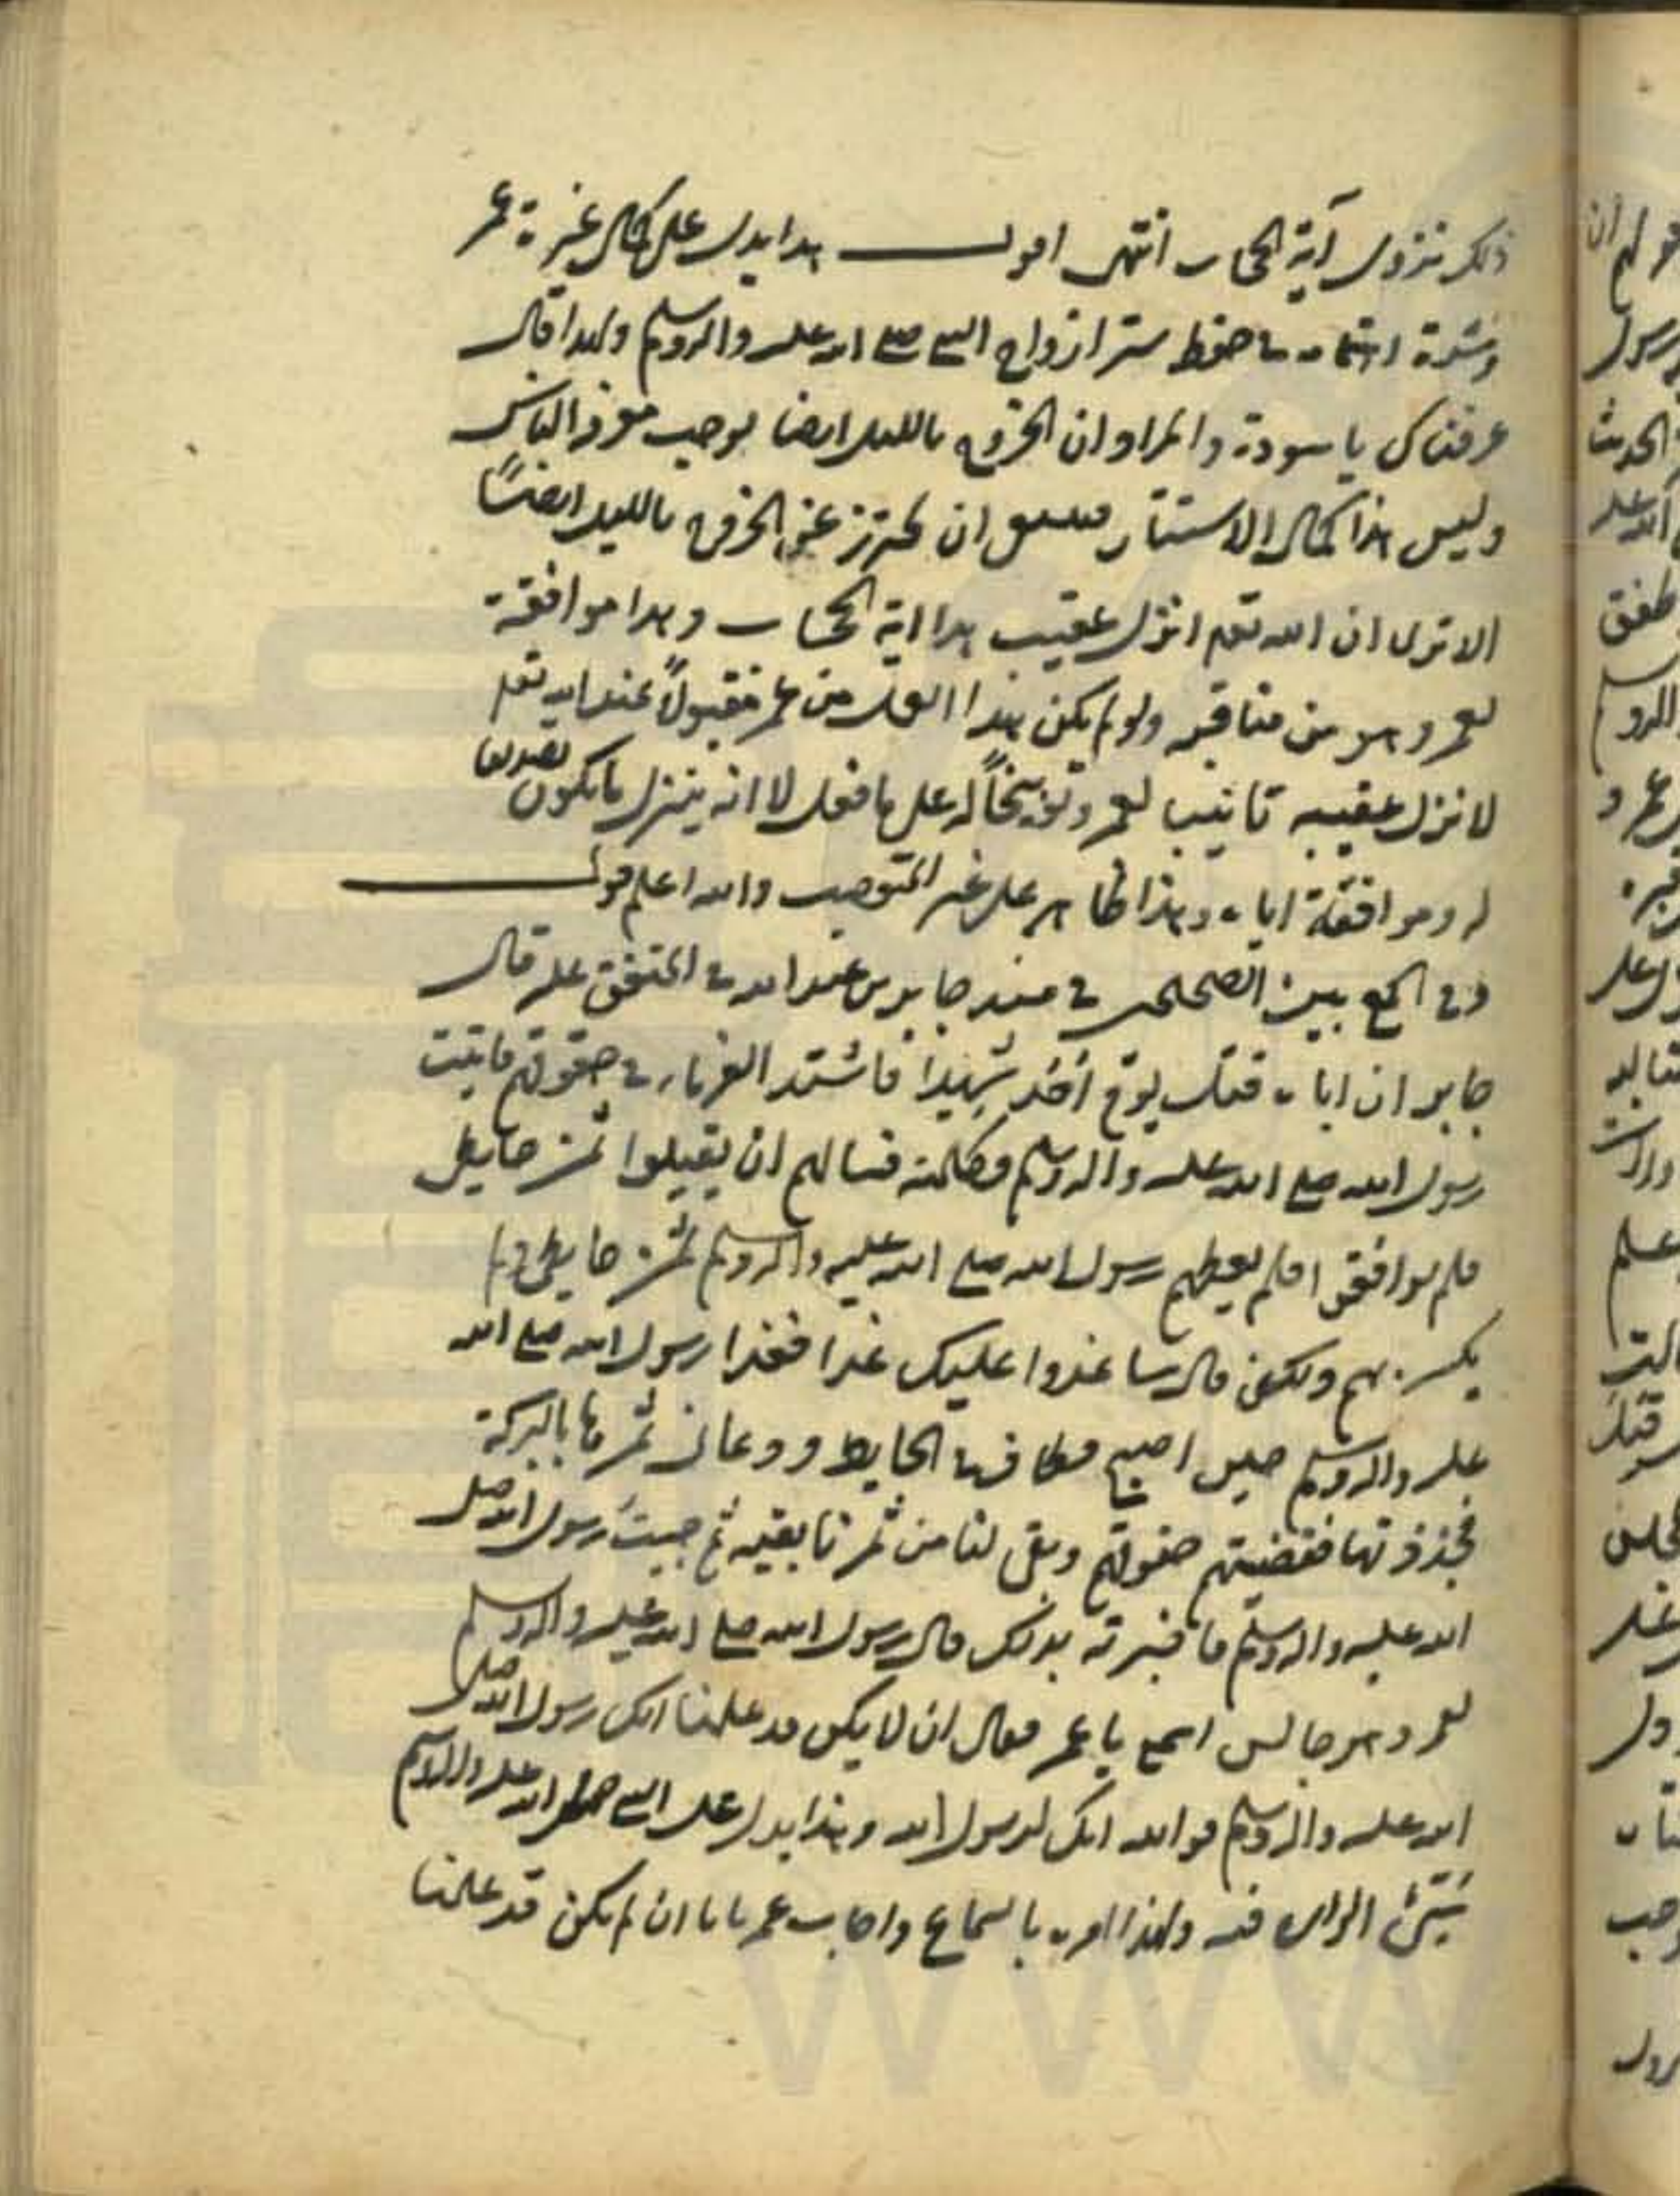 ذلك بنزول آية الحجاب انتهى اقول هذا يدل على كمال غيرة عمر
وشدة اهتمامه في حفظ ستر ازواج النبي صلى الله عليه واله وسلم ولهذا قال
عرفناك يا سودة والمراد ان الخروج بالليل ايضا يوجب معرفة الناس
وليس هذا كمال الاستتار فينبغي ان تحترز عن الخروج بالليل ايضًا
الا ترى ان الله تعالى انزل عقيب هذا اية الحجاب وهذا موافقة
لعمر وهو من مناقبه ولو لم يكن هذا الفعل من عمر مقبولاً عند الله تعالى
لانزل عقيبه تانيب لعمر وتوبيخاً له على ما فعل لا انه ينزل ما يكون تصديقا
له وموافقة اياه وهذا ظاهر على غير المتعصب والله اعلم قوله
وفي الجمع بين الصحيحين في مسند جابر بن عبد الله في المتفق عليه قال
جابر ان اباه قتل يوم احد شهيدا فاشتد الغرماء في حقوقهم فاتيت
رسول الله صلى الله عليه واله وسلم فكلمته فسالهم ان يقبلوا ثمر حايطي
فلم يوافقوا فلم يعطهم رسول الله صلى الله عليه واله وسلم ثمرة حايطي ولم
يكسره لهم ولكن قال ساغدوا عليك غدا فغدا رسول الله صلى الله
عليه واله وسلم حين اصبح فطاف في الحايط ودعا في ثمرها بالبركة
فجذذتها فقضيتهم حقوقهم وبقي لنا من ثمرنا بقية ثم جيت رسول الله صلى
الله عليه واله وسلم فاخبرته بذلك قال رسول الله صلى الله عليه واله وسلم
لعمر وهو جالس اسمع يا عمر فقال ان لا يكن قد علمنا انك رسول الله صلى
الله عليه واله وسلم فوالله انك لرسول الله وهذا يدل على النبي صلى الله عليه واله وسلم
سيئ الراي فيه ولهذا امره بالسماع واجاب عمر بانا ان لم نكن قد علمنا